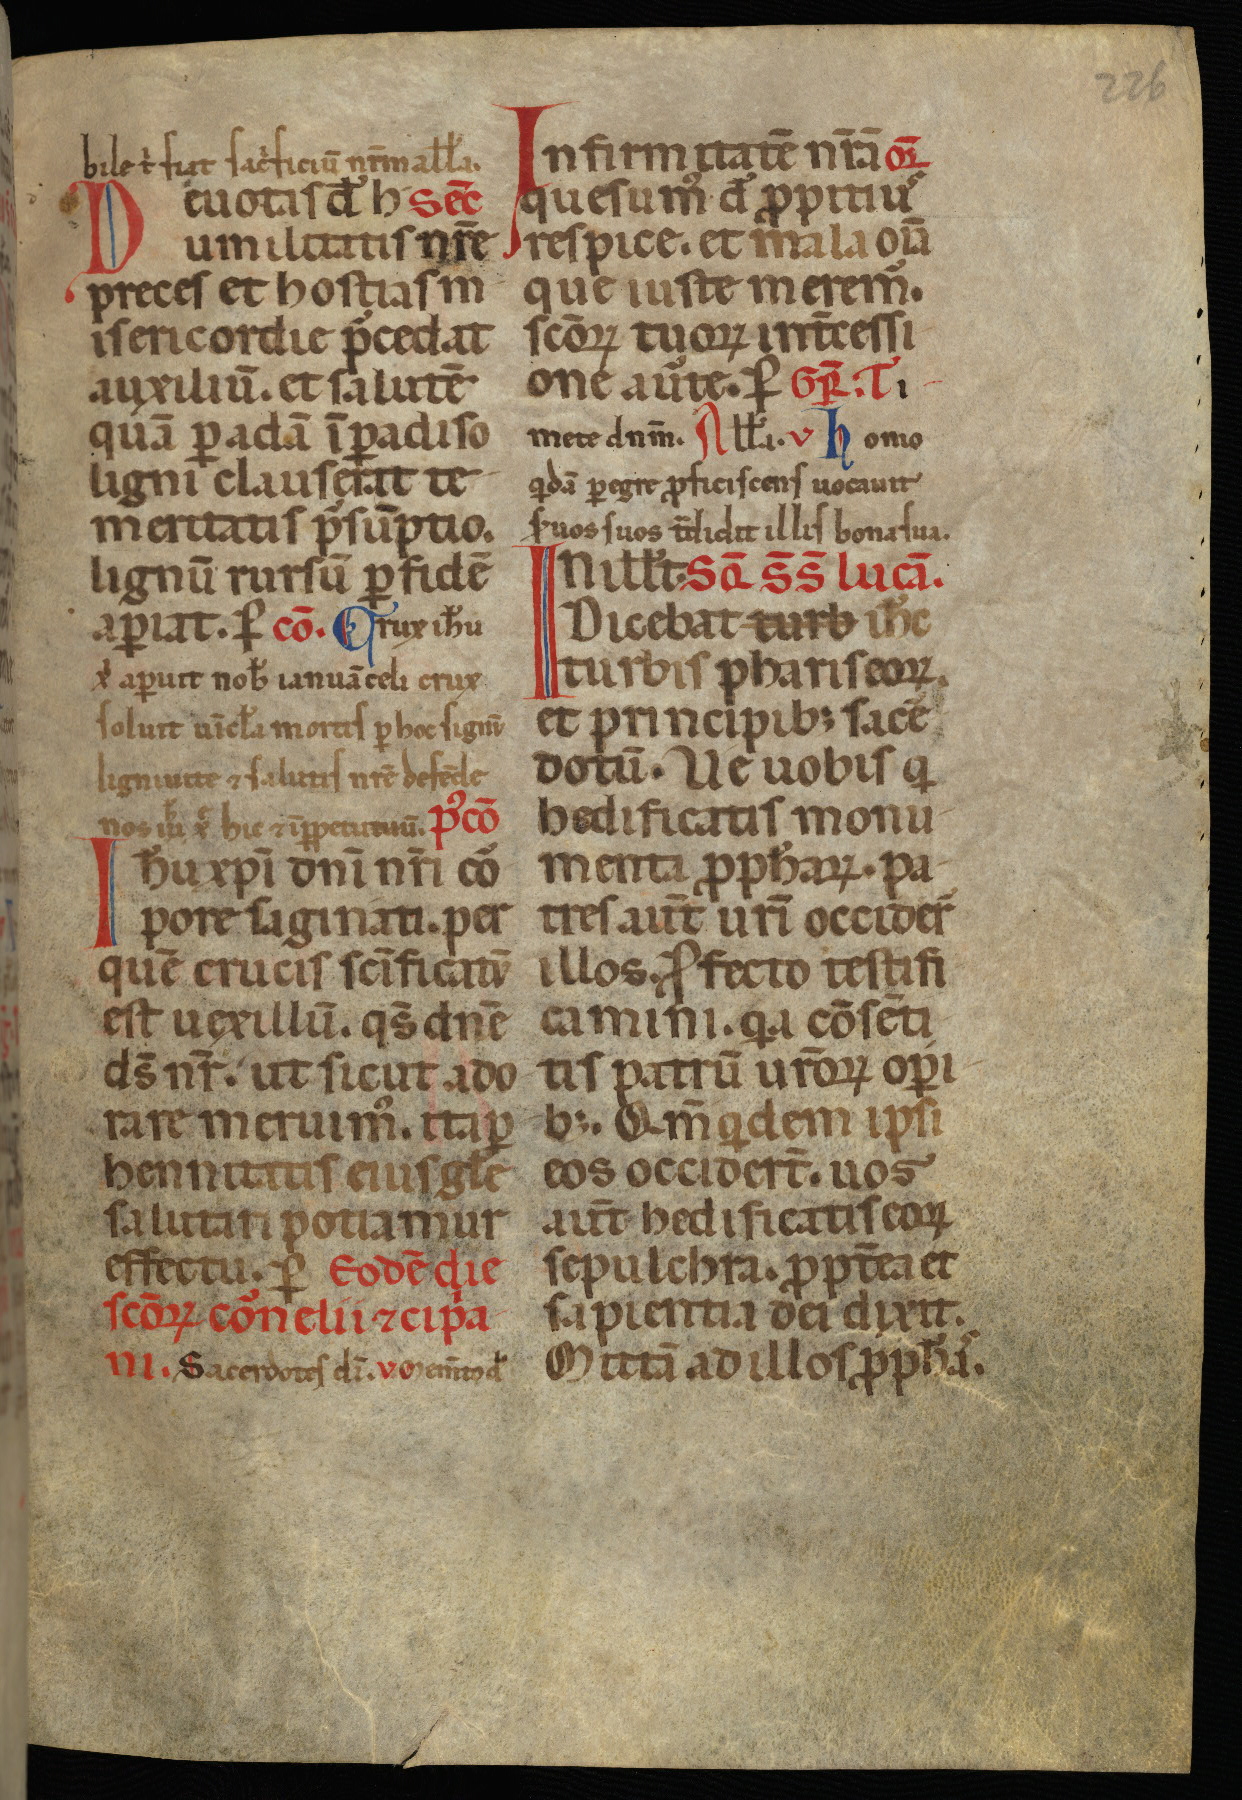 226
bile t̾ fiat sac̾ficiū nr̄m all̄a.
Deuotas d̄ h Sec̄
umilitatis nr̄e
preces et hostias m
isericordie p̾cedat
auxiliū. et salutē
quā ꝑ adā ī ꝑadiso
ligni clauserat te
meritatis p̾sūptio.
lignū rursū ꝑ fidē
aꝑiat. ꝑ cō. Crux ih̄u
x̄ aꝑuit nob̄ ianuā celi crux
soluit uīcl̄a mortis ꝑ hoc signū
ligni uite ⁊ salutis nr̄e defēde
nos ih̄u x̄ hic ⁊ ī ꝑpetuum. P̾cō
Ih̄u xp̄i dn̄i nr̄i cō
pore saginati. per
quē crucis scīficatū
est uexillū. qs̄ dn̄e
ds̄ nr̄. ut sicut ado
rare meruim᾽. ita ꝑ
hennitatis eius gl̄e
salutari potiamur
effectu. ꝑ Eodē die
scōꝝ cōnelii ⁊ cip̾a
ni. Sacerdotes dī. v Mem̄to d̄
Infirmitatē nr̄ā or̄
quesum᾽ d̄ ꝓpitiu᾽
respice. et mala oīā
que iuste merem᾽.
scōꝝ tuoꝝ int̄cessi
one au̾te. ꝑ Gr̄. Ti
mete dn̄m. All̄a. v Homo
qdā ꝑegre ꝓficiscens uocauit
s̾uos suos t̄didit illis bona sua.
In ill̄t. Sc̄d̄ S̄S̄ lucā.
Dicebat turb ih̄c
turbis phariseoꝝ.
et principibꝫ sacē
dotū. Ue uobis q
hedificatis monu
menta ꝓph̄aꝝ. pa
tres aūt uri̅ occider̄
illos. Ꝓfecto testifi
camini. q̄a cōsēti
tis patrū ur̄oꝝ oꝑi
bꝫ. Qm̄ qdem ipsi
eos occidert̄. uos
aūt hedificatis eoꝝ
sepulchra. ꝓpt̄ea et
sapientia dei dixit.
Mittā ad illos ꝓph̄as.